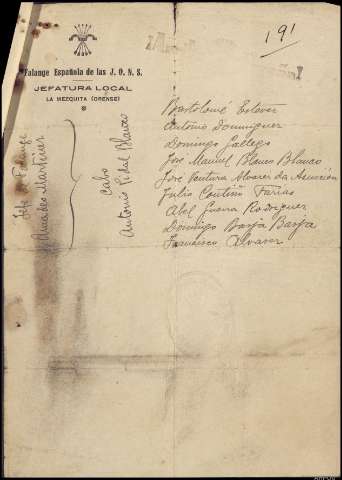 Falange Española de las J. O. N. S.
JEFATURA LOCAL
LA MEZQUITA (ORENSE)
191
Jefe de Falange
Amadeo Martínez
Cabo
Antonio Vidal Blanco
Bartolomé Estevez
Antonio Dominguez
Domingo Gallego
José Manuel Blanco Blanco
José Ventura Alvarez da Asunción
Julio Coutiño Farias
Abel Guerra Rodriguez
Domingo Barja Barja
Francisco Alvarez